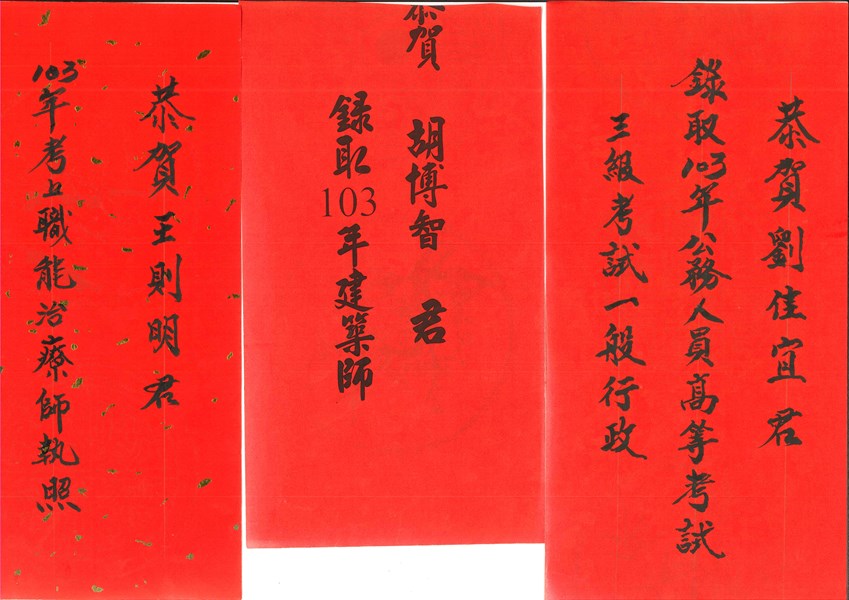 恭賀劉佳宜君
錄取103年公務人員高等考試
三級考試一般行政
恭賀 胡博智 君
録取103年建築師
恭賀王則明君
103年考上職能治療師執照